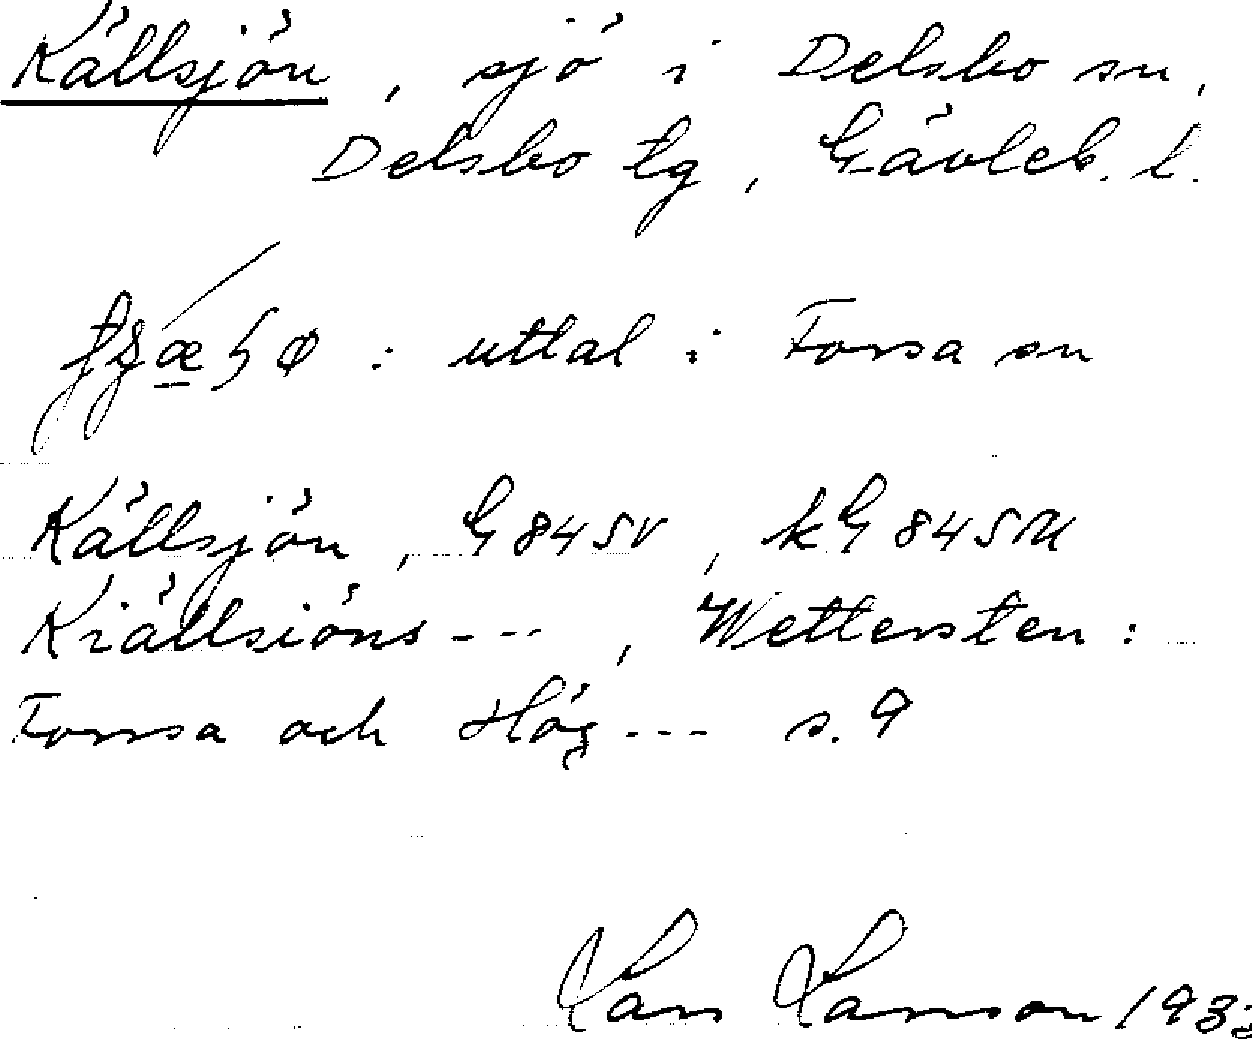 Källsjön, sjö i Delsbo sn,
Delsbo tg, Gävleb. l.
: uttal i Forsa sn
Källsjön, G 84 SV, kG 84 SU
Kiällsiöns ---, Wettersten:
Forsa och Hög --- s. 9
Lars Larsson 1933